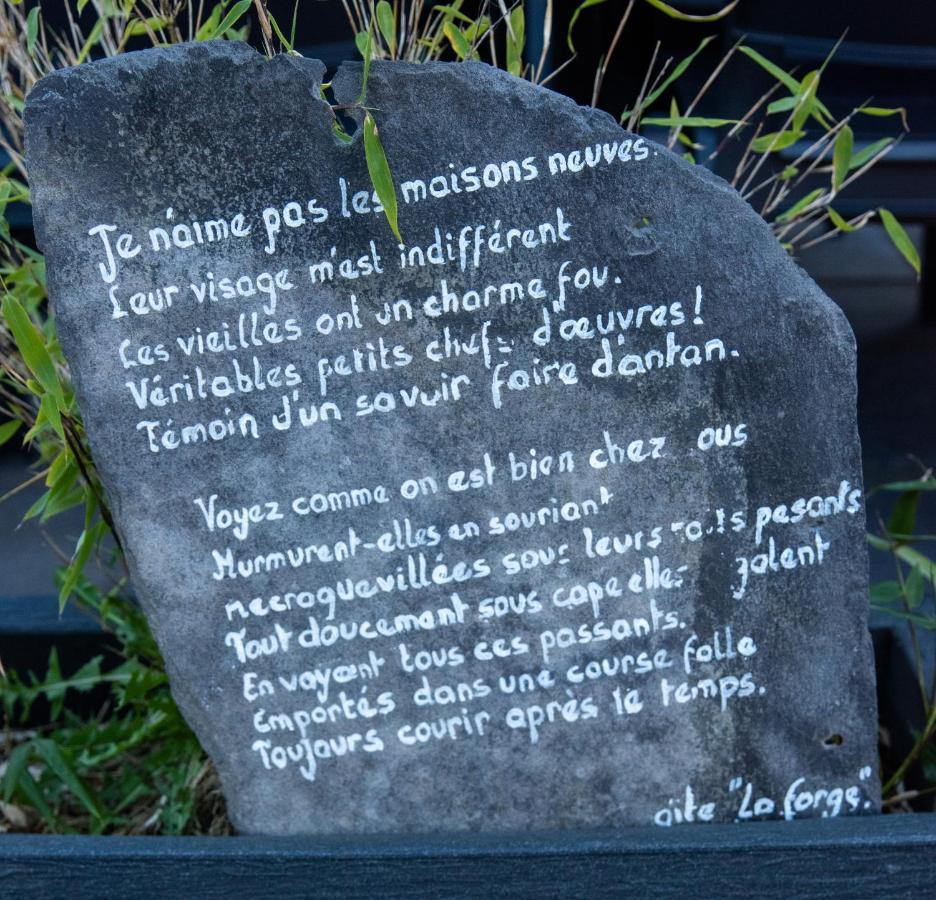 Je n'aime pas les maisons neuves.
Leur visage m'est indifférent
Les vieilles ont un charme fou.
Véritables petits chefs d'œuvres!
Témoin d'un savoir faire d'antan.
Voyez comme on est bien chez ous
Murmurent-elles en souriant
necroquevillées sous leurs toits pesants
Tout doucement sous cape elles
En voyant tous ces passants.
Emportés dans une course folle
Toujours courir après le temps.
gîte "La forge."